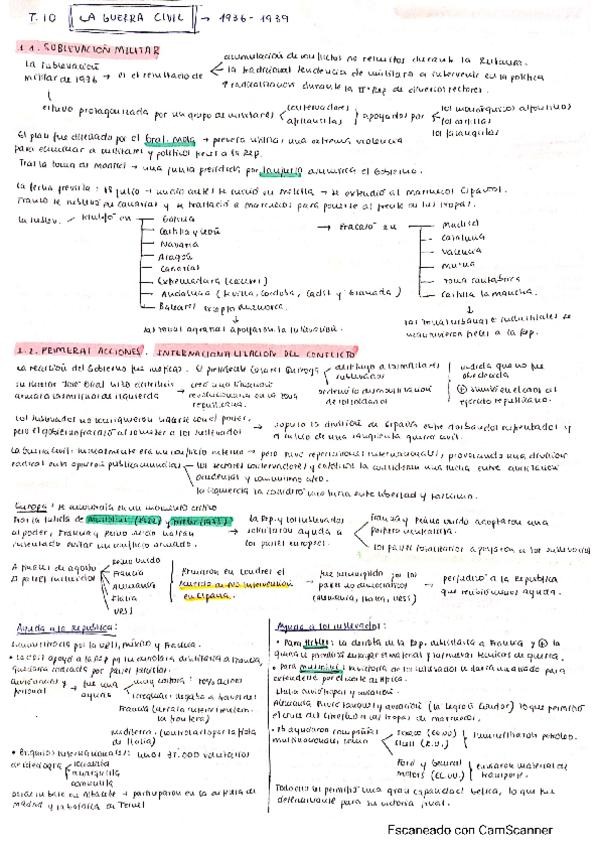 T. 10 LA GUERRA CIVIL → 1936 - 1939
1.1. SUBLEVACIÓN MILITAR
La sublevación militar de 1936 → es el resultado de
acumulación de conflictos no resueltos durante la
la tradicional tendencia de militares a intervenir en la política
radicalización durante la IIª Rep. de diversos sectores.
estuvo protagonizada por un grupo de militares
conservadores
africanistas
apoyados por
los monárquicos alfonsinos
los carlistas
los falangistas
El plan fue diseñado por el Gral. Mola → preveía utilizar una extrema violencia
para eliminar a militares y políticos fieles a la Rep.
Tras la toma de Madrid → una junta presidida por Sanjurjo asumiría el Gobierno.
La fecha prevista: 18 julio → un día antes se inició en Melilla → se extendió al Marruecos Español.
Franco se sublevó en Canarias y se trasladó a Marruecos para ponerse al frente de las tropas.
triunfó en
Galicia
Castilla y León
Navarra
Aragón
Canarias
Extremadura (Cáceres)
Andalucía (Sevilla, Córdoba, Cádiz y Granada)
Baleares excepto Menorca.
→ fracasó en
Madrid
Cataluña
Valencia
Murcia
zona cantábrica
Castilla la Mancha
las zonas agrarias apoyaron la sublevación.
las zonas urbanas e industriales se mantuvieron fieles a la Rep.
1.2. PRIMERAS ACCIONES. INTERNACIONALIZACIÓN DEL CONFLICTO
La reacción del Gobierno fue ineficaz. El presidente Casares Quiroga
destituyó a los militares sublevados
ordenó la desmovilización de los soldados
medida que no fue obedecida
su sucesor José Giral
armar a las milicias de izquierda
creó una situación revolucionaria en la zona republicana.
Los sublevados no consiguieron hacerse con el poder,
pero el gobierno fracasó al someter a los sublevados
→ supuso la división de España entre dos bandos enfrentados y
el inicio de una sangrienta guerra civil.
La guerra civil: inicialmente era un conflicto interno → pero tuvo repercusiones internacionales, provocando una división
radical en la opinión pública mundial
los sectores conservadores y católicos la consideraron una lucha entre civilización
cristiana y comunismo ateo.
la izquierda la consideró una lucha entre libertad y fascismo.
Europa: se encontraba en un momento crítico
Tras la subida de Mussolini (1922) y Hitler (1933)
al poder, Francia y Reino Unido habían
intentado evitar un conflicto armado.
→ la Rep. y los sublevados
solicitaron ayuda a
los países europeos.
Francia y Reino Unido adoptaron una
postura neutralista.
los países totalitarios apoyaron a los sublevados
A partir de agosto
Reino Unido
Francia
Alemania
Italia
URSS
firmaron en Londres el
Acuerdo de No Intervención
en España.
→ fue incumplido por los
países no democráticos
(Alemania, Italia, URSS)
→ perjudicó a la República
que recibió menos ayuda.
Ayuda a la República:
Suministrada por la URSS, México y Francia.
• La URSS apoyó a la Rep.
Francia
• Brigadas Internacionales: unos 35.000 voluntarios
de ideología
socialista
anarquista
comunista
base en Albacete → participaron en la defensa de
Madrid y la batalla de Teruel
Ayuda a los sublevados:
• Para Hitler: la derrota de la Rep. debilitaría a Francia y
material y nuevas técnicas de guerra.
• Para Mussolini: la victoria de los sublevados le daría un aliado para
extenderse por el norte de África.
Italia envió tropas y aviación.
Alemania envió tanques y aviación (la Legión Cóndor) lo que permitió
el cruce del Estrecho a las tropas de Marruecos.
compañías
multinacionales como
Texaco (EE.UU.)
Shell (R.U.)
suministraron petróleo.
Ford y General
Motors (EE.UU.)
enviaron material de
transporte.
Todo esto les permitió una gran capacidad bélica, lo que fue
determinante para su victoria final.
Escaneado con CamScanner